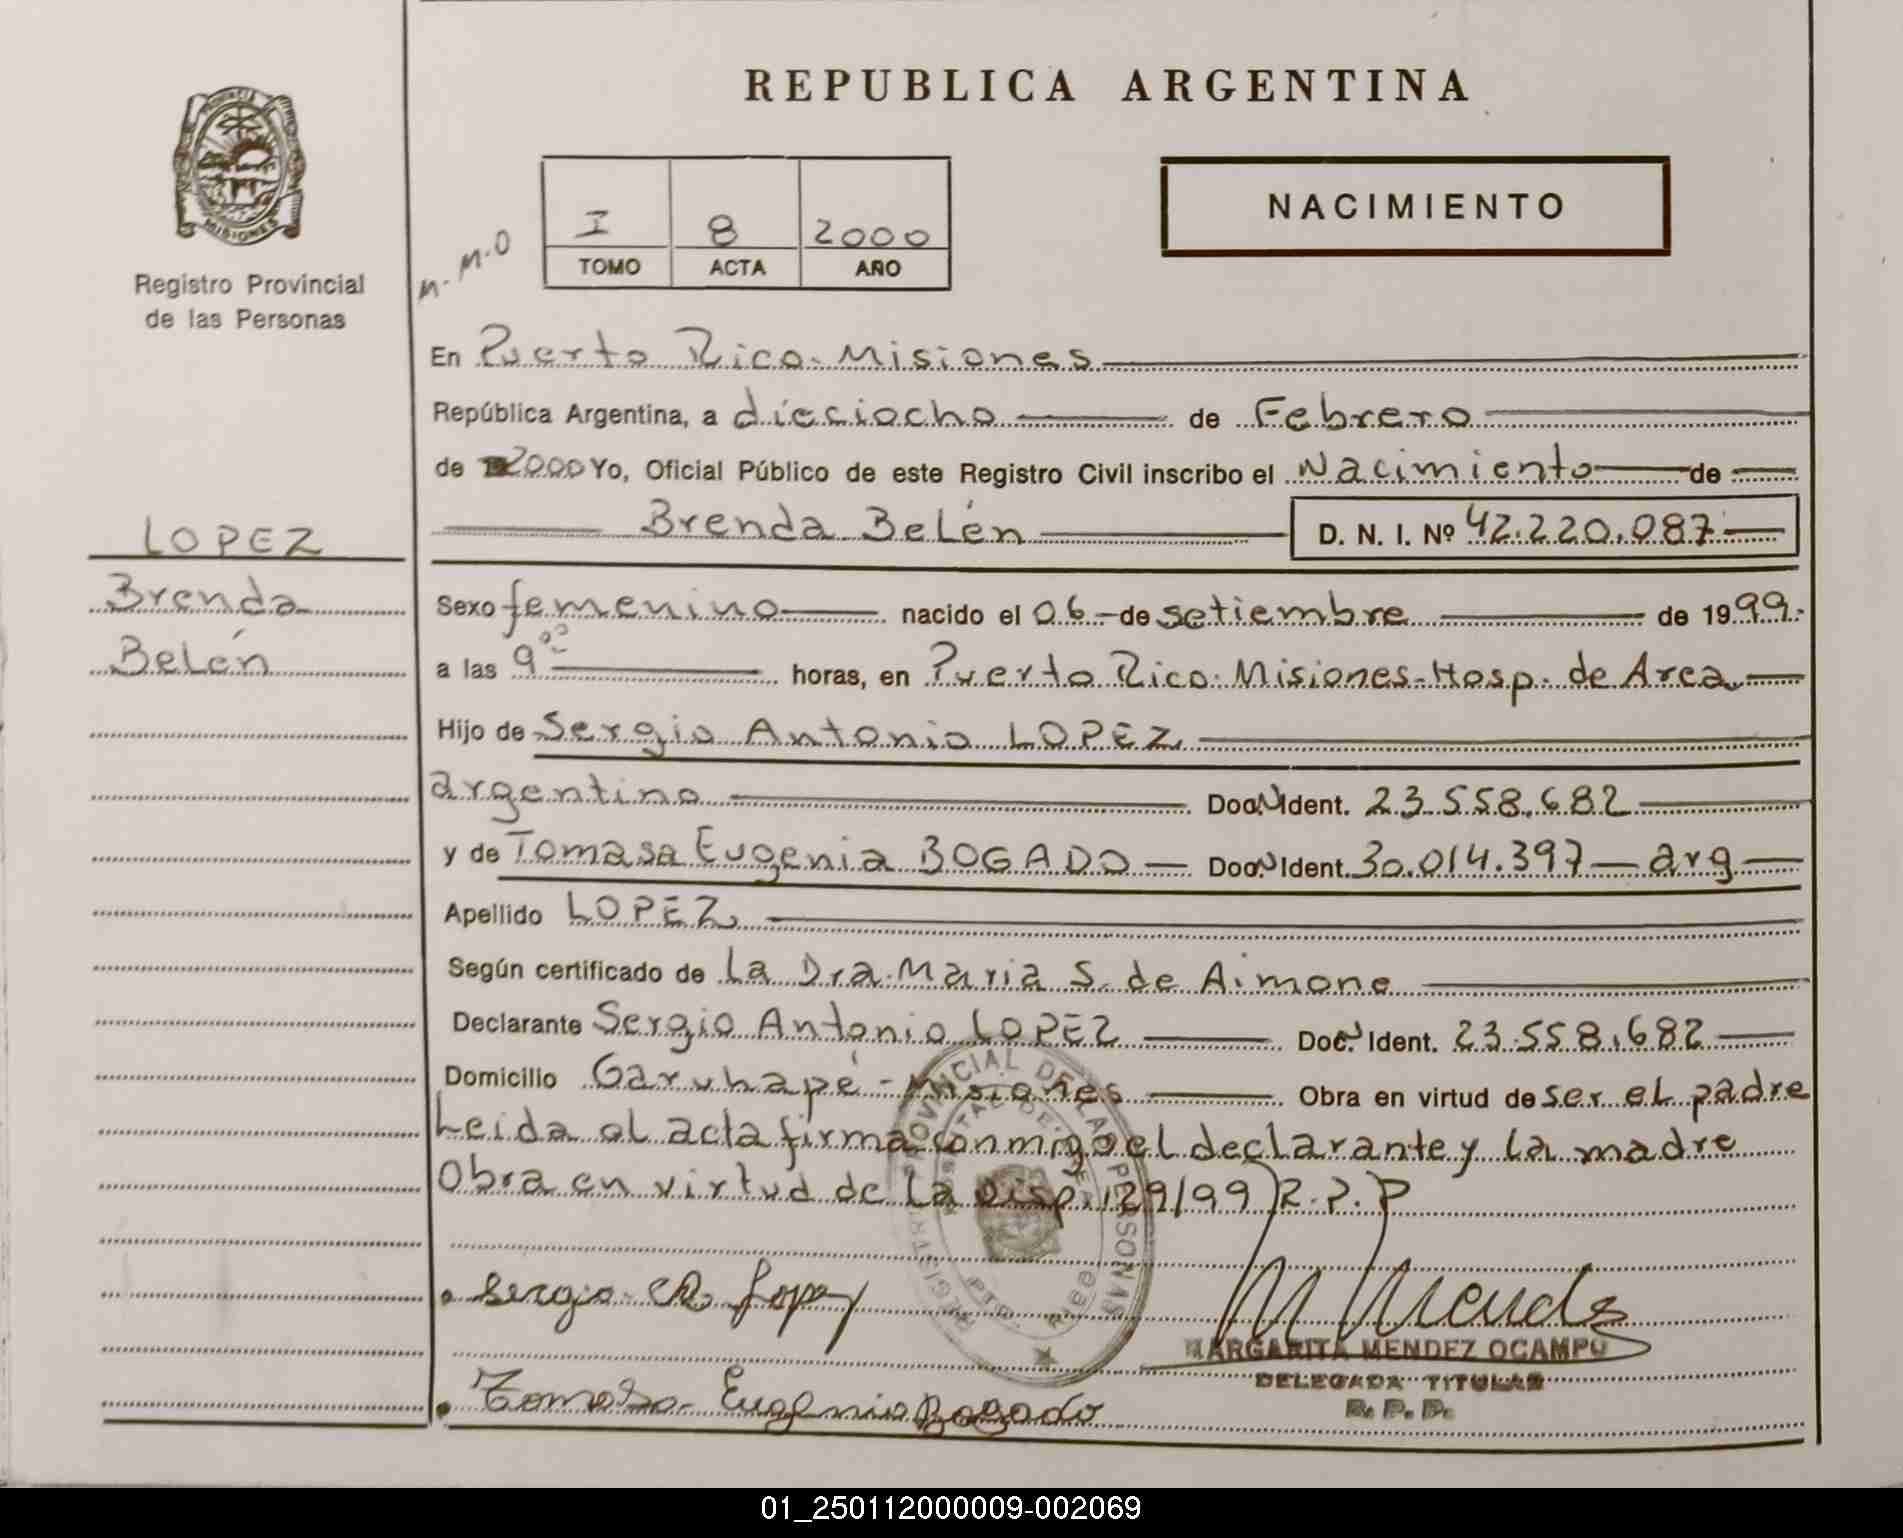 REPUBLICA ARGENTINA
PROVINCIA DE MISIONES
Registro Provincial
de las Personas
NACIMIENTO
I 8 2000
TOMO ACTA AÑO
M. M. O
En Puerto Rico. Misiones
República Argentina, a dieciocho de Febrero
de 2000 Yo, Oficial Público de este Registro Civil inscribo el Nacimiento de
Brenda Belén D. N. I. Nº 42.220.087
LOPEZ
Brenda
Belén
Sexo femenino nacido el 06 de setiembre de 1999.
a las 9⁰⁰ horas, en Puerto Rico. Misiones-Hosp. de Area
Hijo de Sergio Antonio LOPEZ
argentino Doc. N Ident. 23.558.682
y de Tomasa Eugenia BOGADO Doc. N Ident. 30.014.397 arg
Apellido LOPEZ
Según certificado de La Dra. Maria S. de Aimone
Declarante Sergio Antonio LOPEZ Doc. N Ident. 23.558.682
Domicilio Garuhapé - Misiones Obra en virtud de ser el padre
Leida al acta firma conmigo el declarante y la madre
Obra en virtud de la Disp. 129/99 R.P.P
REGISTRO PROVINCIAL DE LAS PERSONAS
Sergio A. Lopez
M Mendez
MARGARITA MENDEZ OCAMPO
DELEGADA TITULAR
R. P. P.
Tomasa Eugenia Bogado
01_250112000009-002069